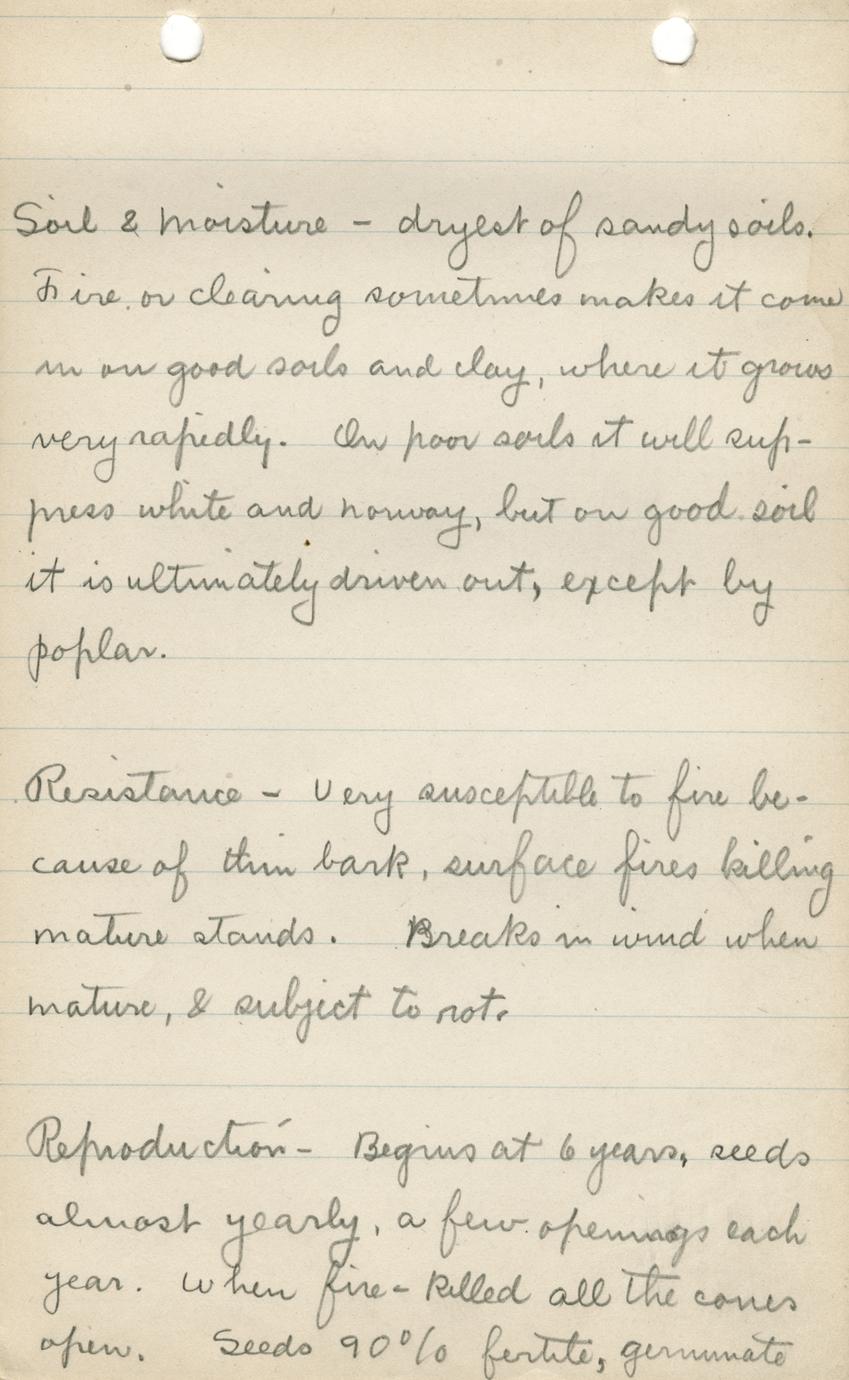 Soil & Moisture - dryest of sandy soils.
Fire or clearing sometimes makes it come
in on good soils and clay, where it grows
very rapidly. On poor soils it will sup-
press white and norway, but on good soil
it is ultimately driven out, except by
poplar.
Resistance - Very susceptible to fire be-
cause of thin bark, surface fires killing
mature stands. Breaks in wind when
mature, & subject to rot.
Reproduction - Begins at 6 years, seeds
almost yearly, a few openings each
year. When fire-killed all the cones
open. Seeds 90% fertile, germinate